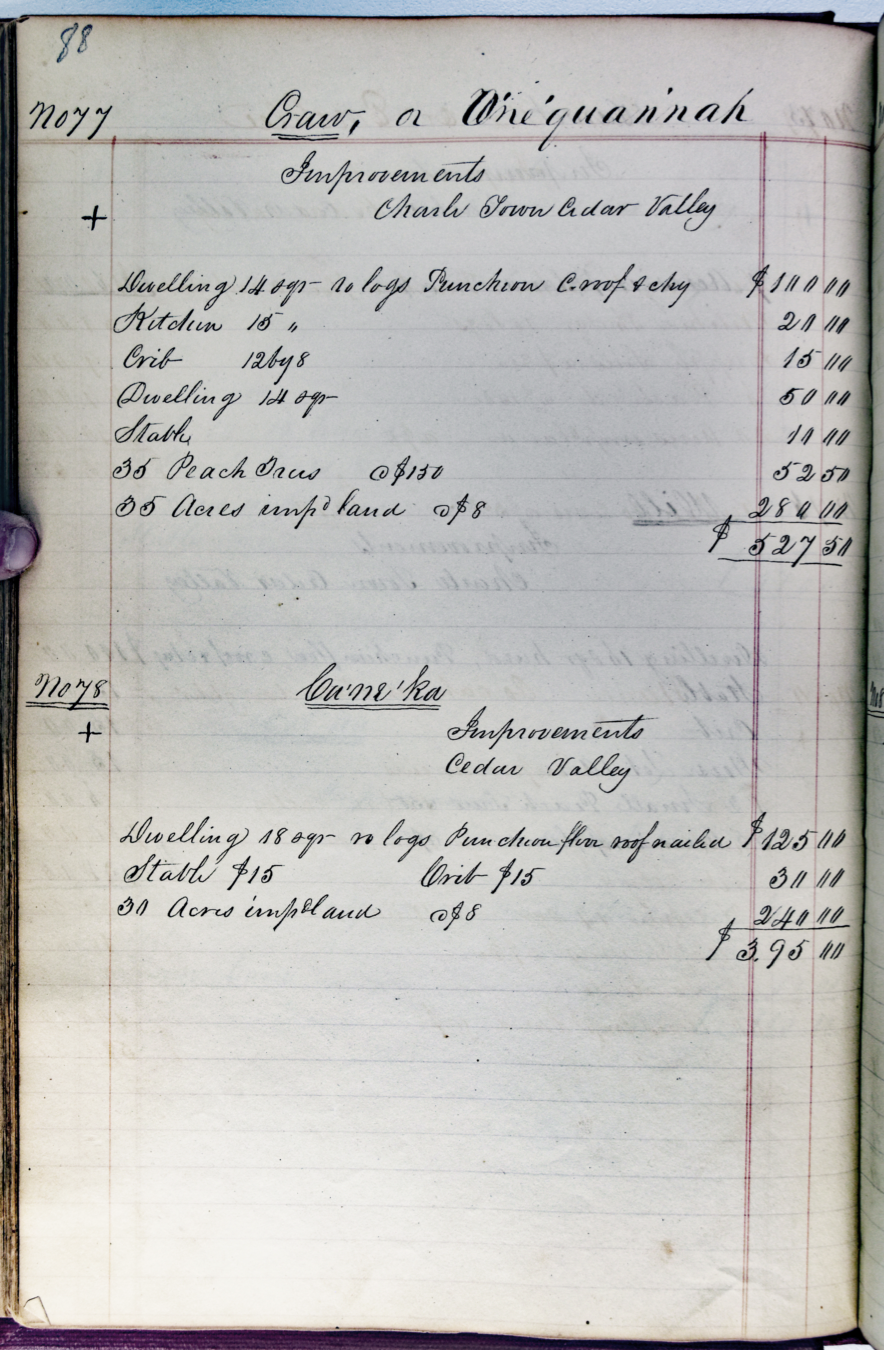 88
No 77 Craw, or One'quan'nah
Improvements
+ Charle Town Cedar Valley
Dwelling 14 sqr ro logs Puncheon C. roof & chy $100 00
Kitchen 15 " 20 00
Crib 12 by 8 15 00
Dwelling 14 sqr 50 00
Stable 10 00
35 Peach Trees @ $150 52 50
35 Acres impd land @ $8 280 00
$ 527 50
No 78 Ca'ne'ka
+ Improvements
Cedar Valley
Dwelling 18 sqr ro logs Puncheon floor roof nailed $125 00
Stable $15 Crib $15 30 00
30 Acres impd land @ $8 240 00
$ 395 00